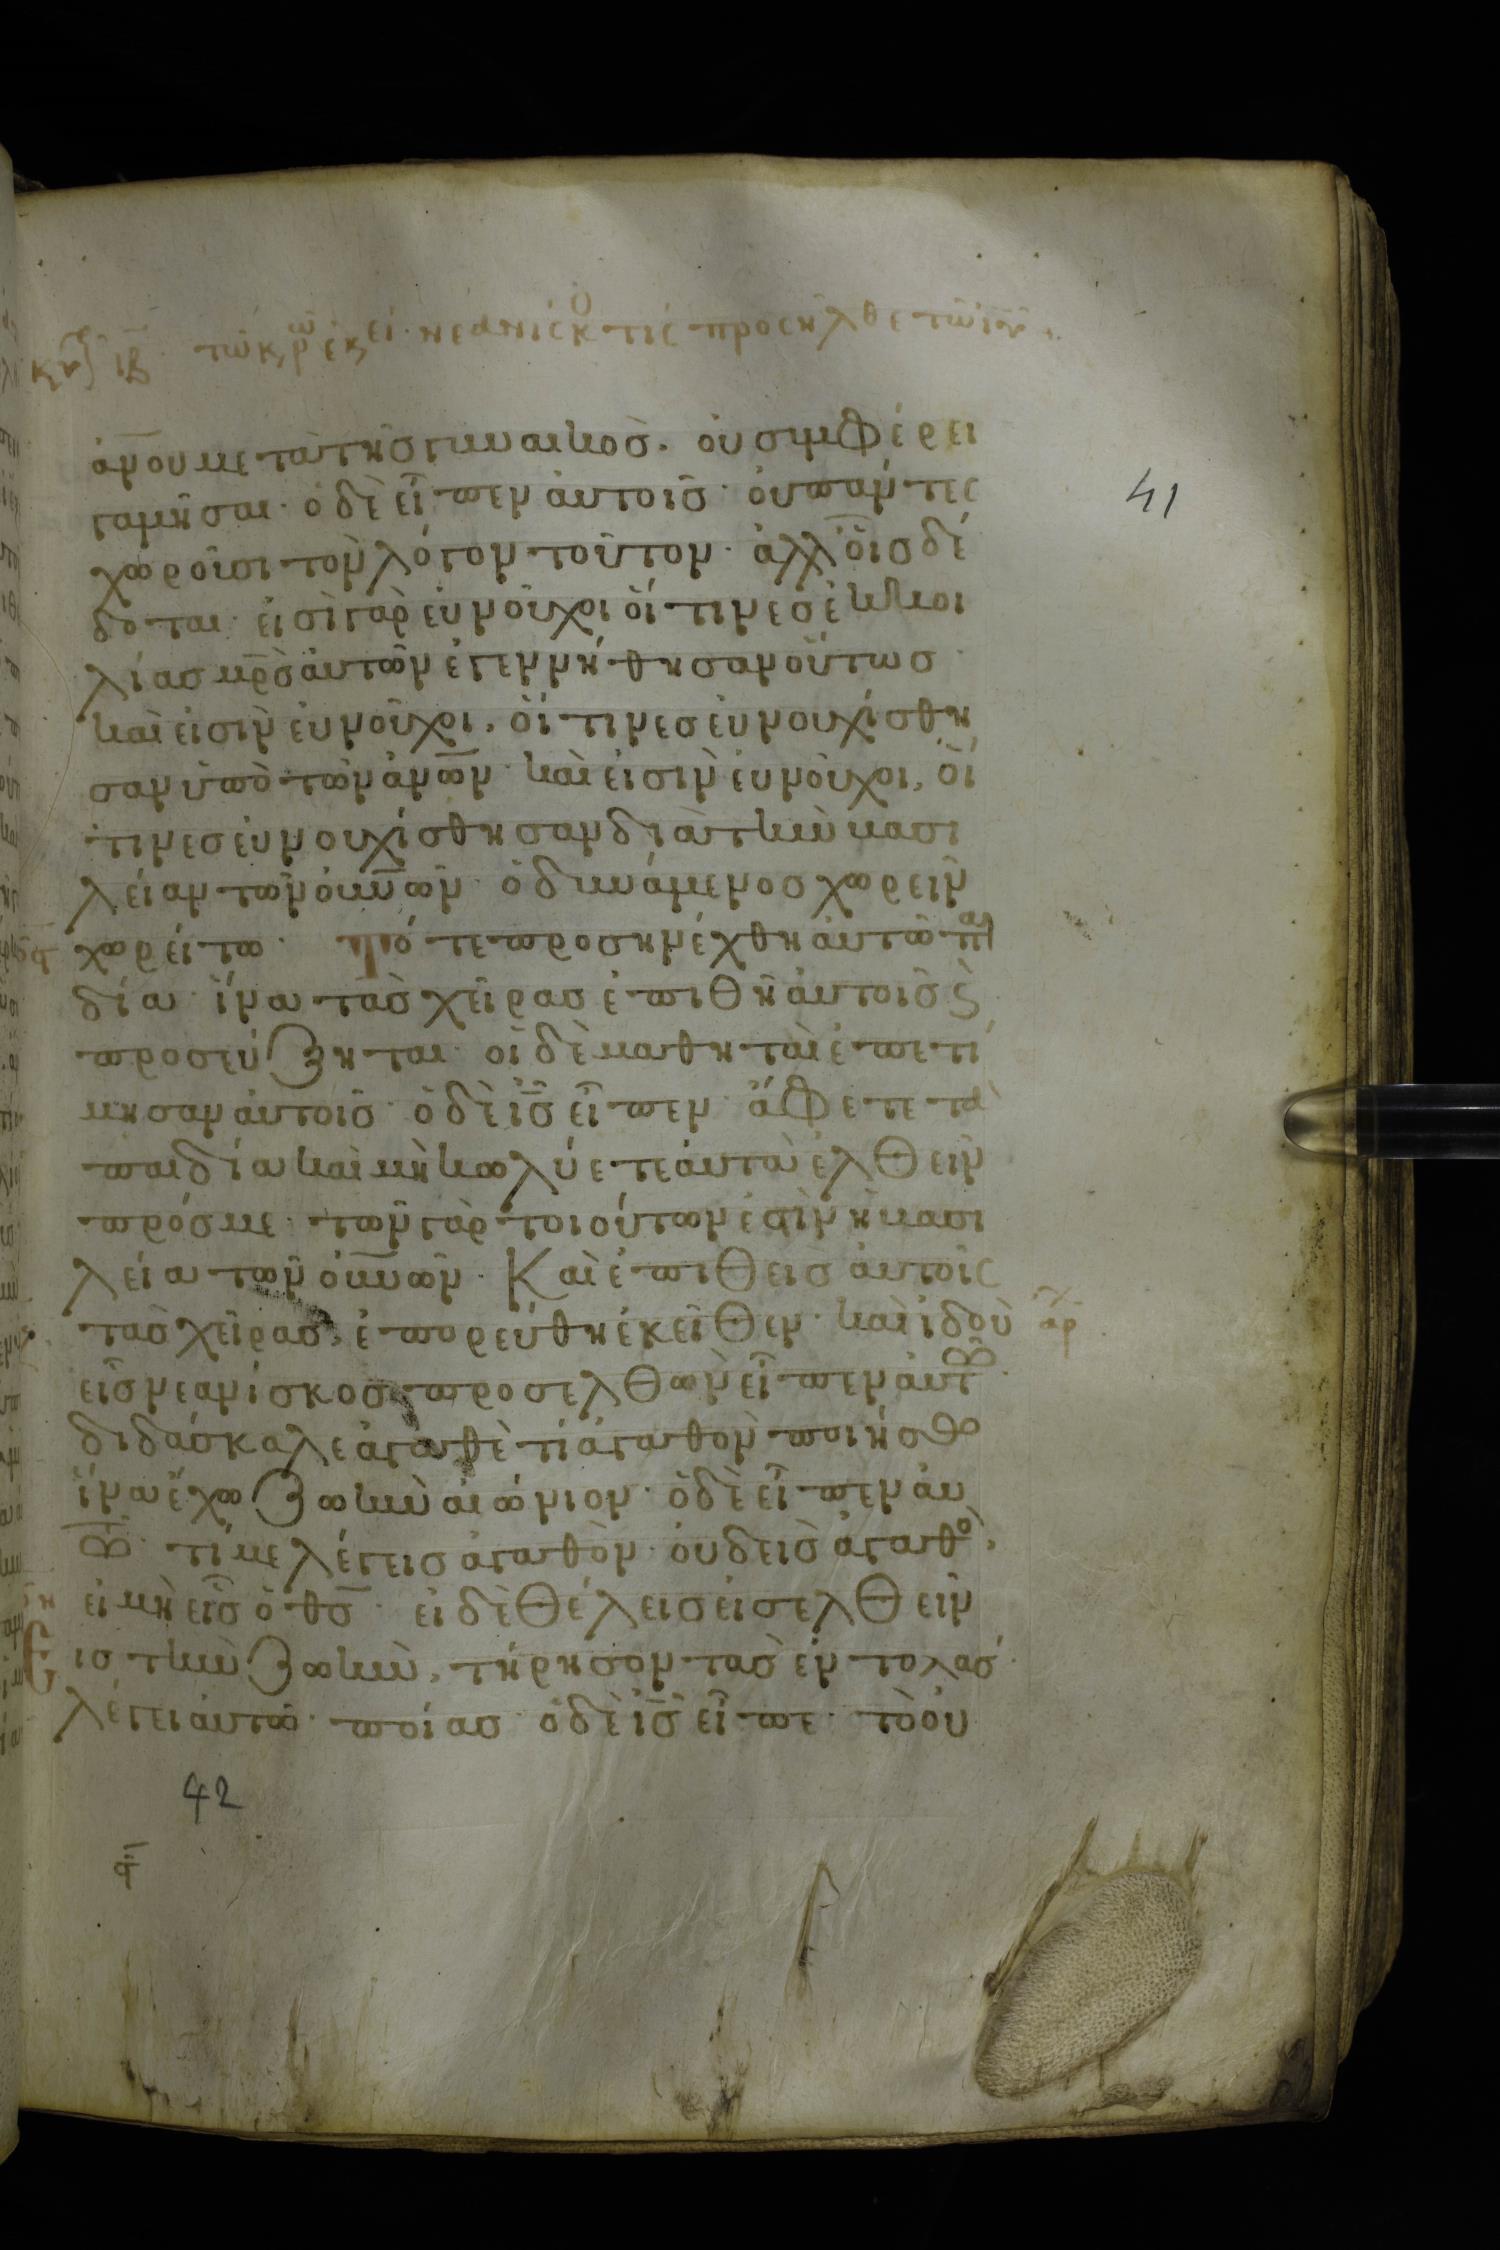 κυ ιβ τῶ κ ρ ω ἐκ ει νεανίσκο τίς προσῆλθε τῶ ιυ
41
ἀνου μετὰ τῆς γυναικὸς. οὐ συμφέρει
γαμῆσαι· ὁ δὲ εἶπεν αὐτοῖς· οὐ πάντες
χωροῦσι τὸν λόγον τοῦτον· ἀλλ οἷς δέ
δοται· εἰσὶ γὰρ εὐνοῦχοι οἵτινες ἐκ κοι
λίας μρς αὐτῶν ἐγεννήθησαν οὕτως
καὶ εἰσὶν εὐνοῦχοι, οἵτινες εὐνουχίσθη
σαν ὑπὸ τῶν ἀνων· καὶ εἰσὶν εὐνοῦχοι, οἵ
τινες εὐνουχίσθησαν διὰ τὴν βασι
λείαν τῶν οὐνων· ὁ δυνάμενος χωρεῖν
χωρείτω· τότε προσηνέχθη αὐτῶ παι
δία· ἵνα τὰς χεῖρας ἐπιθῆ αὐτοῖς ϛ
προσεύξηται· οἱ δὲ μαθηταὶ ἐπετί
μησαν αὐτοῖς· ὁ δὲ ις εἶπεν· ἄφετε τὰ
παιδία καὶ μὴ κωλύετε αὐτὰ ἐλθεῖν
πρός με· τῶν γὰρ τοιούτων ἐστὶν ἡ βασι
λεία τῶν οὐνων· Καὶ ἐπιθεὶς αὐτοῖς
τὰς χεῖρας, ἐπορεύθη ἐκεῖθεν· καὶ ἰδοὺ αρχ
εἷς νεανίσκος προσελθὼν εἶπεν αὐτῶ
διδάσκαλε ἀγαθὲ τί ἀγαθὸν ποιήσω
ἵνα ἔχω ζωὴν αἰώνιον· ὁ δὲ εἶπεν αὐ
τῶ· τί με λέγεις ἀγαθὸν· οὐδεὶς ἀγαθο,
εἰ μὴ εἷς ὁ θς· εἰ δὲ θέλεις εἰσελθεῖν
Εἰς τὴν ζωὴν, τήρησον τὰς ἐντολάς·
λέγει αὐτῶ· ποίας· ὁ δὲ ις εἶπε· τὸ οὐ
42